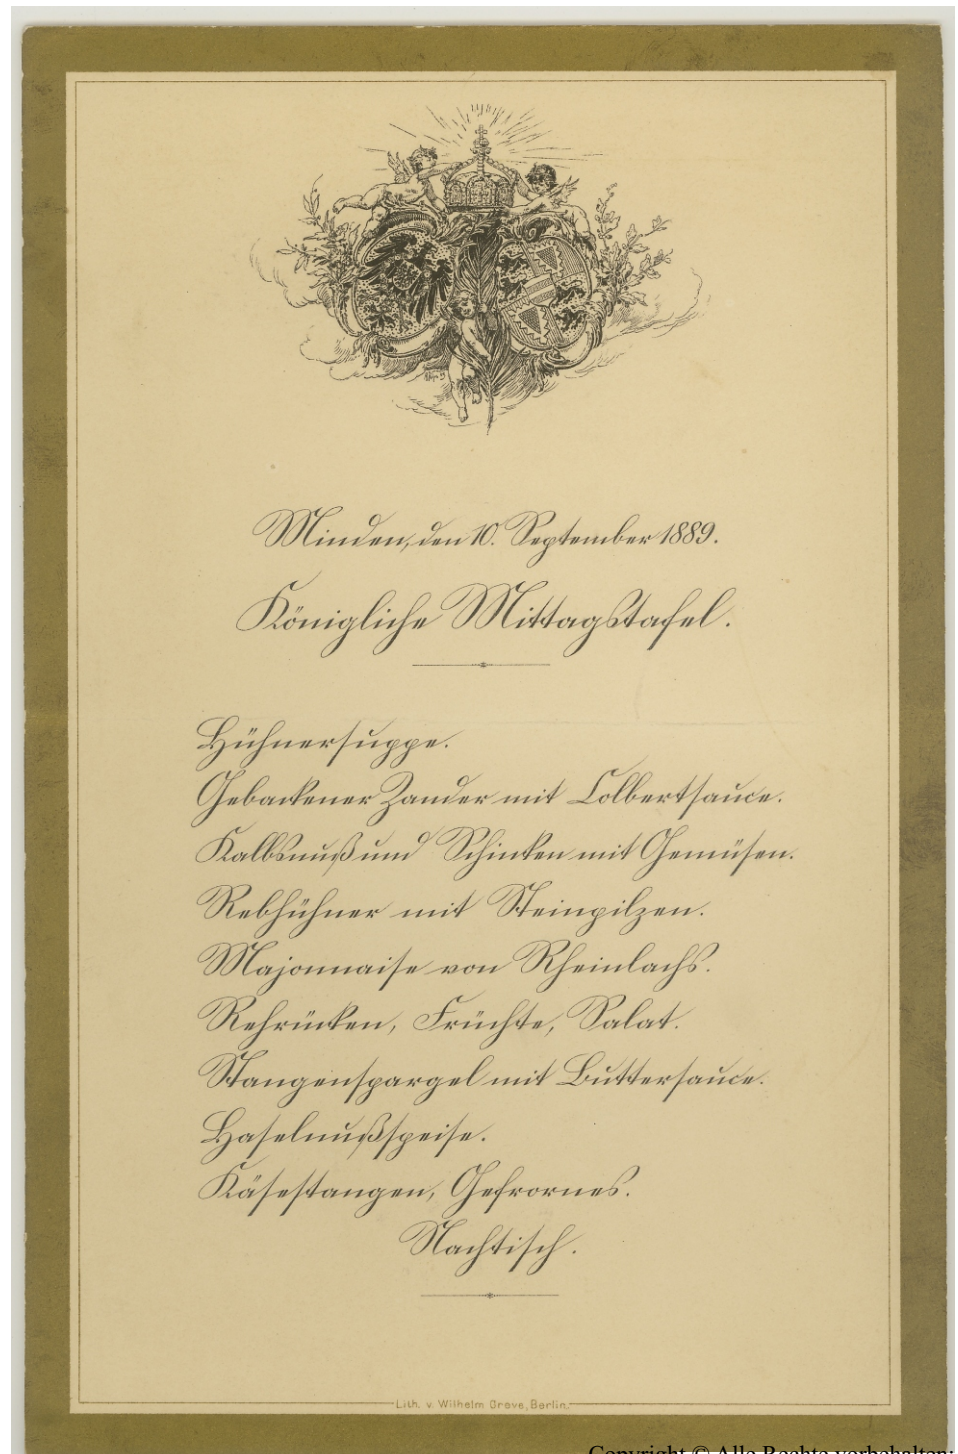 Minden, den 10. September 1889.
Königliche Mittagstafel.
Hühnersuppe.
Gebackener Zander mit Colbertsauce.
Kalbsnuß und Schinken mit Gemüsen.
Rebhühner mit Steinpilzen.
Majonnaise von Rheinlachs.
Rehrücken, Früchte, Salat.
Stangenspargel mit Buttersauce.
Haselnußspeise.
Käsestangen, Gefrornes.
Nachtisch.
Lith. v. Wilhelm Greve, Berlin.
Copyright © Alle Rechte vorbehalten: